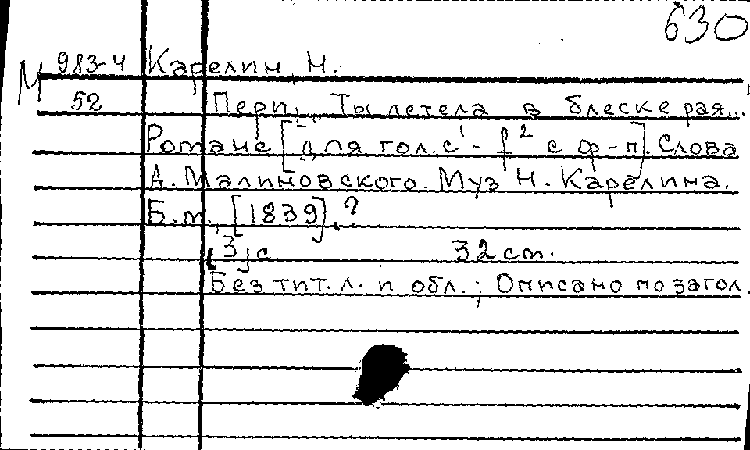 630
М 983-4 Карелин, Н.
52 Пери. „Ты летела в блеске рая...
Романс [для гол. c¹-f² с ф-п]. Слова
А. Малиновского. Муз. Н. Карелина.
Б.м., [1839].?
[3] с 32 см.
Без тит. л. и обл.; Описано по загол.